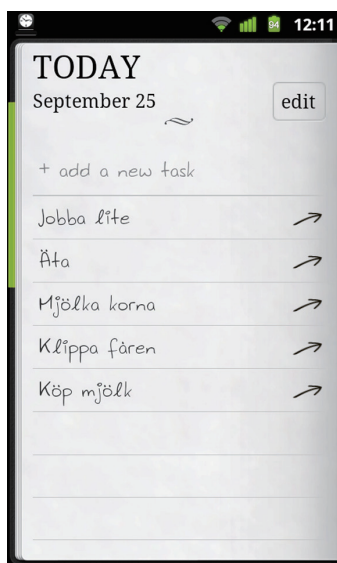 94 12:11
TODAY
September 25
edit
+ add a new task
Jobba lite
Äta
Mjölka korna
Klippa fåren
Köp mjölk